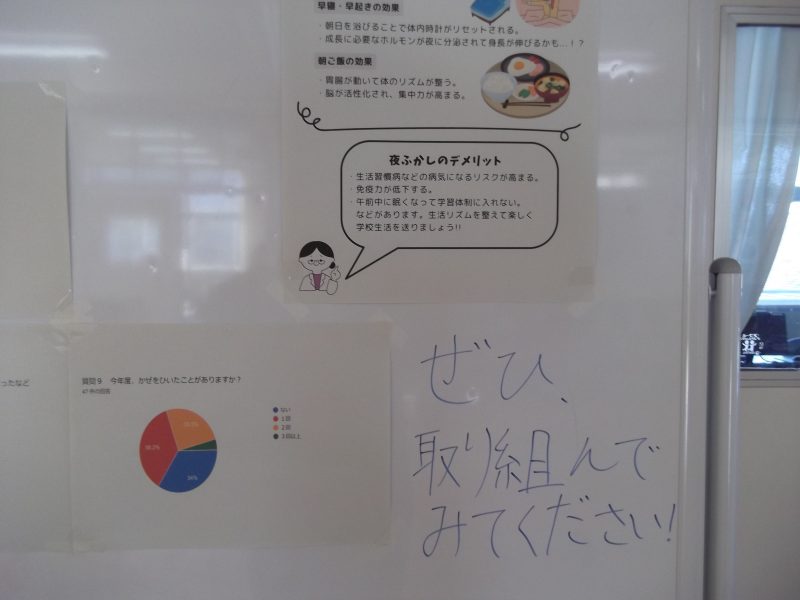 早寝・早起きの効果
・朝日を浴びることで体内時計がリセットされる。
・成長に必要なホルモンが夜に分泌されて身長が伸びるかも…！？
朝ご飯の効果
・胃腸が動いて体のリズムが整う。
・脳が活性化され、集中力が高まる。
夜ふかしのデメリット
・生活習慣病などの病気になるリスクが高まる。
・免疫力が低下する。
・午前中に眠くなって学習体制に入れない。
などがあります。生活リズムを整えて楽しく
学校生活を送りましょう!!
ったなど
質問９　今年度、かぜをひいたことがありますか？
47 件の回答
ない
１回
２回
３回以上
34%
ぜひ、
取り組んで
みてください!